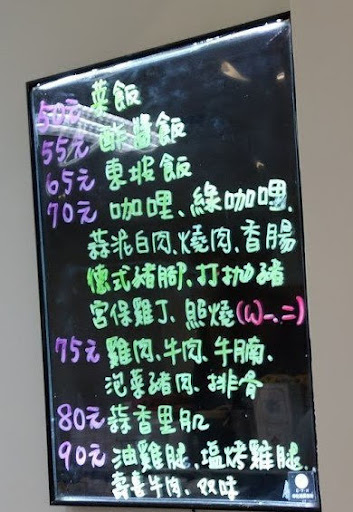 50元 菜飯
55元 酢醬飯
65元 東坡飯
70元 咖哩、綠咖哩、
蒜泥白肉、燒肉、香腸
德式豬腳、打拋豬
宮保雞丁、照燒(W一.二)
75元 雞肉、牛肉、牛腩、
泡菜豬肉、排骨
80元 蒜香里肌
90元 油雞腿、塩烤雞腿、
壽喜牛肉、双味